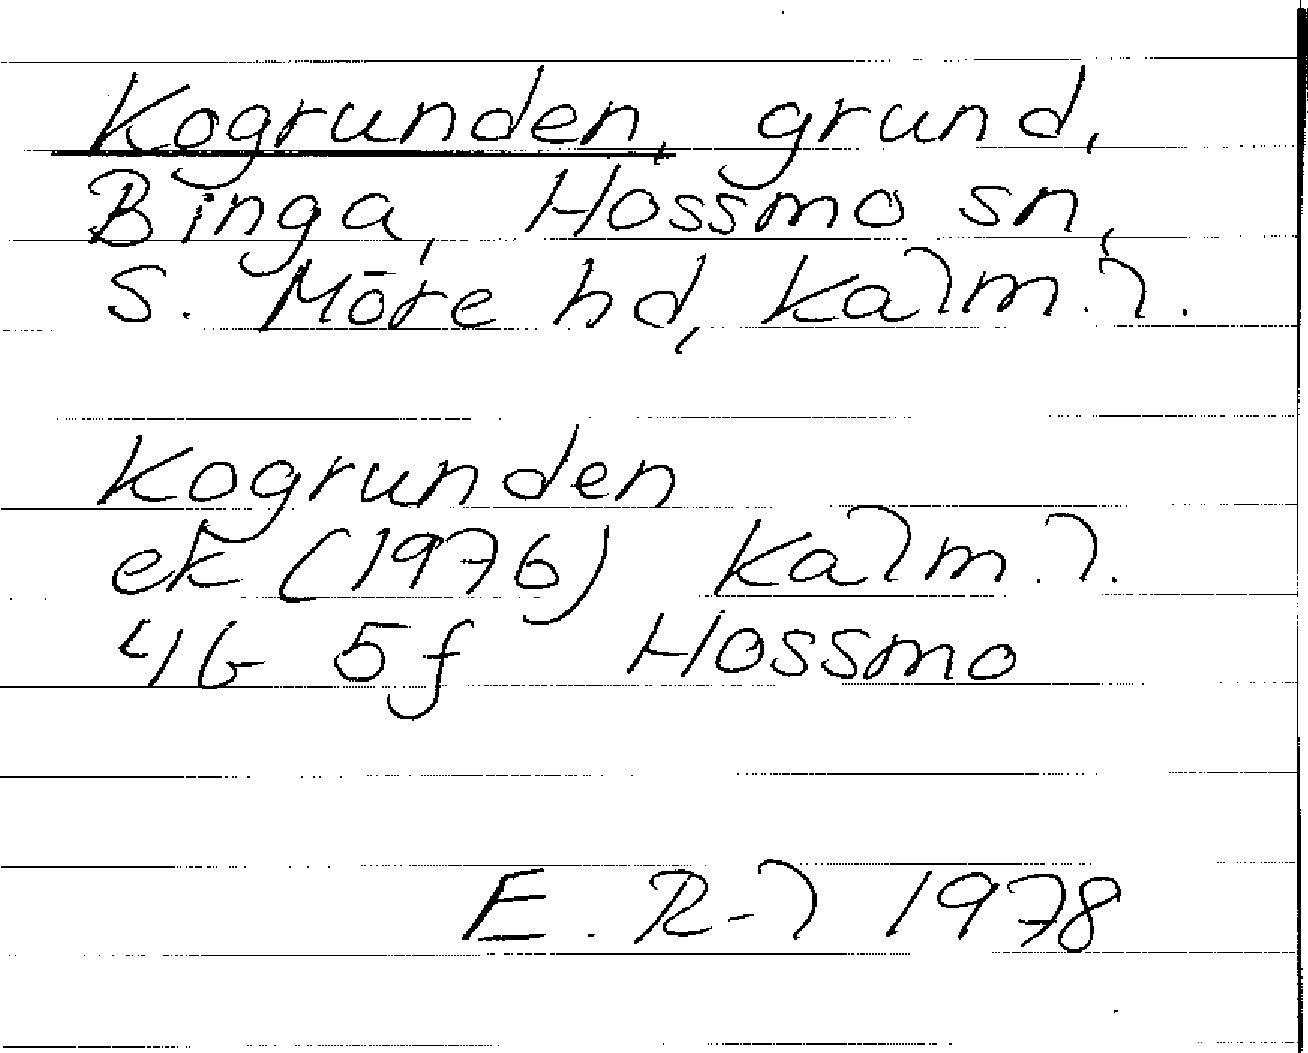 Kogrunden, grund,
Binga, Hossmo sn,
S. Möre hd, Kalm. l.
Kogrunden
ek (1976) Kalm. l.
4G 5f Hossmo
E. R-l 1978